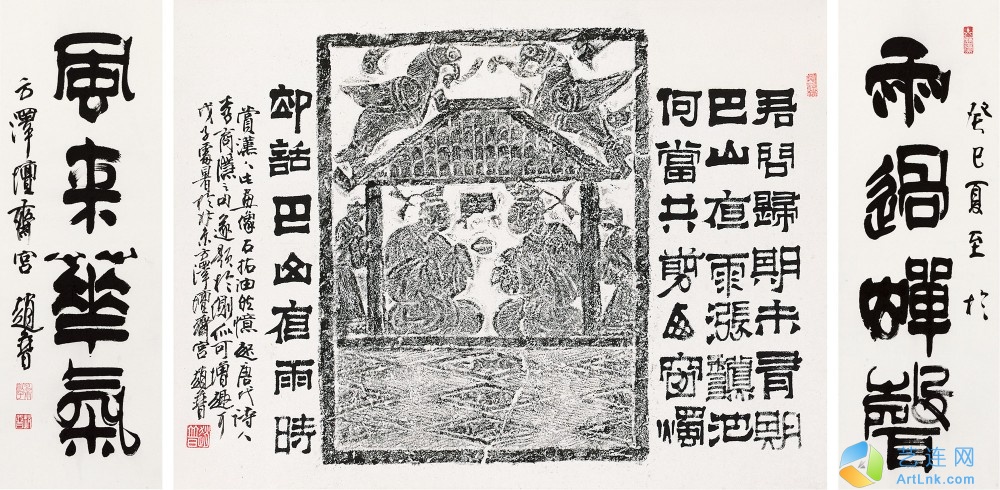 雨過蟬聲
癸巳夏至於
君問歸期未有期
巴山夜雨漲龝池
何當共剪西窗燭
却話巴山夜雨時
賞漢人此画像石拓油然憶起唐代詩人
李商隱之句遂題於側可增趣
戊子處暑於北京方澤壇齋宮 趙普
風来華氣
方澤壇齋宮 趙普
艺连网
ArtLnk.com